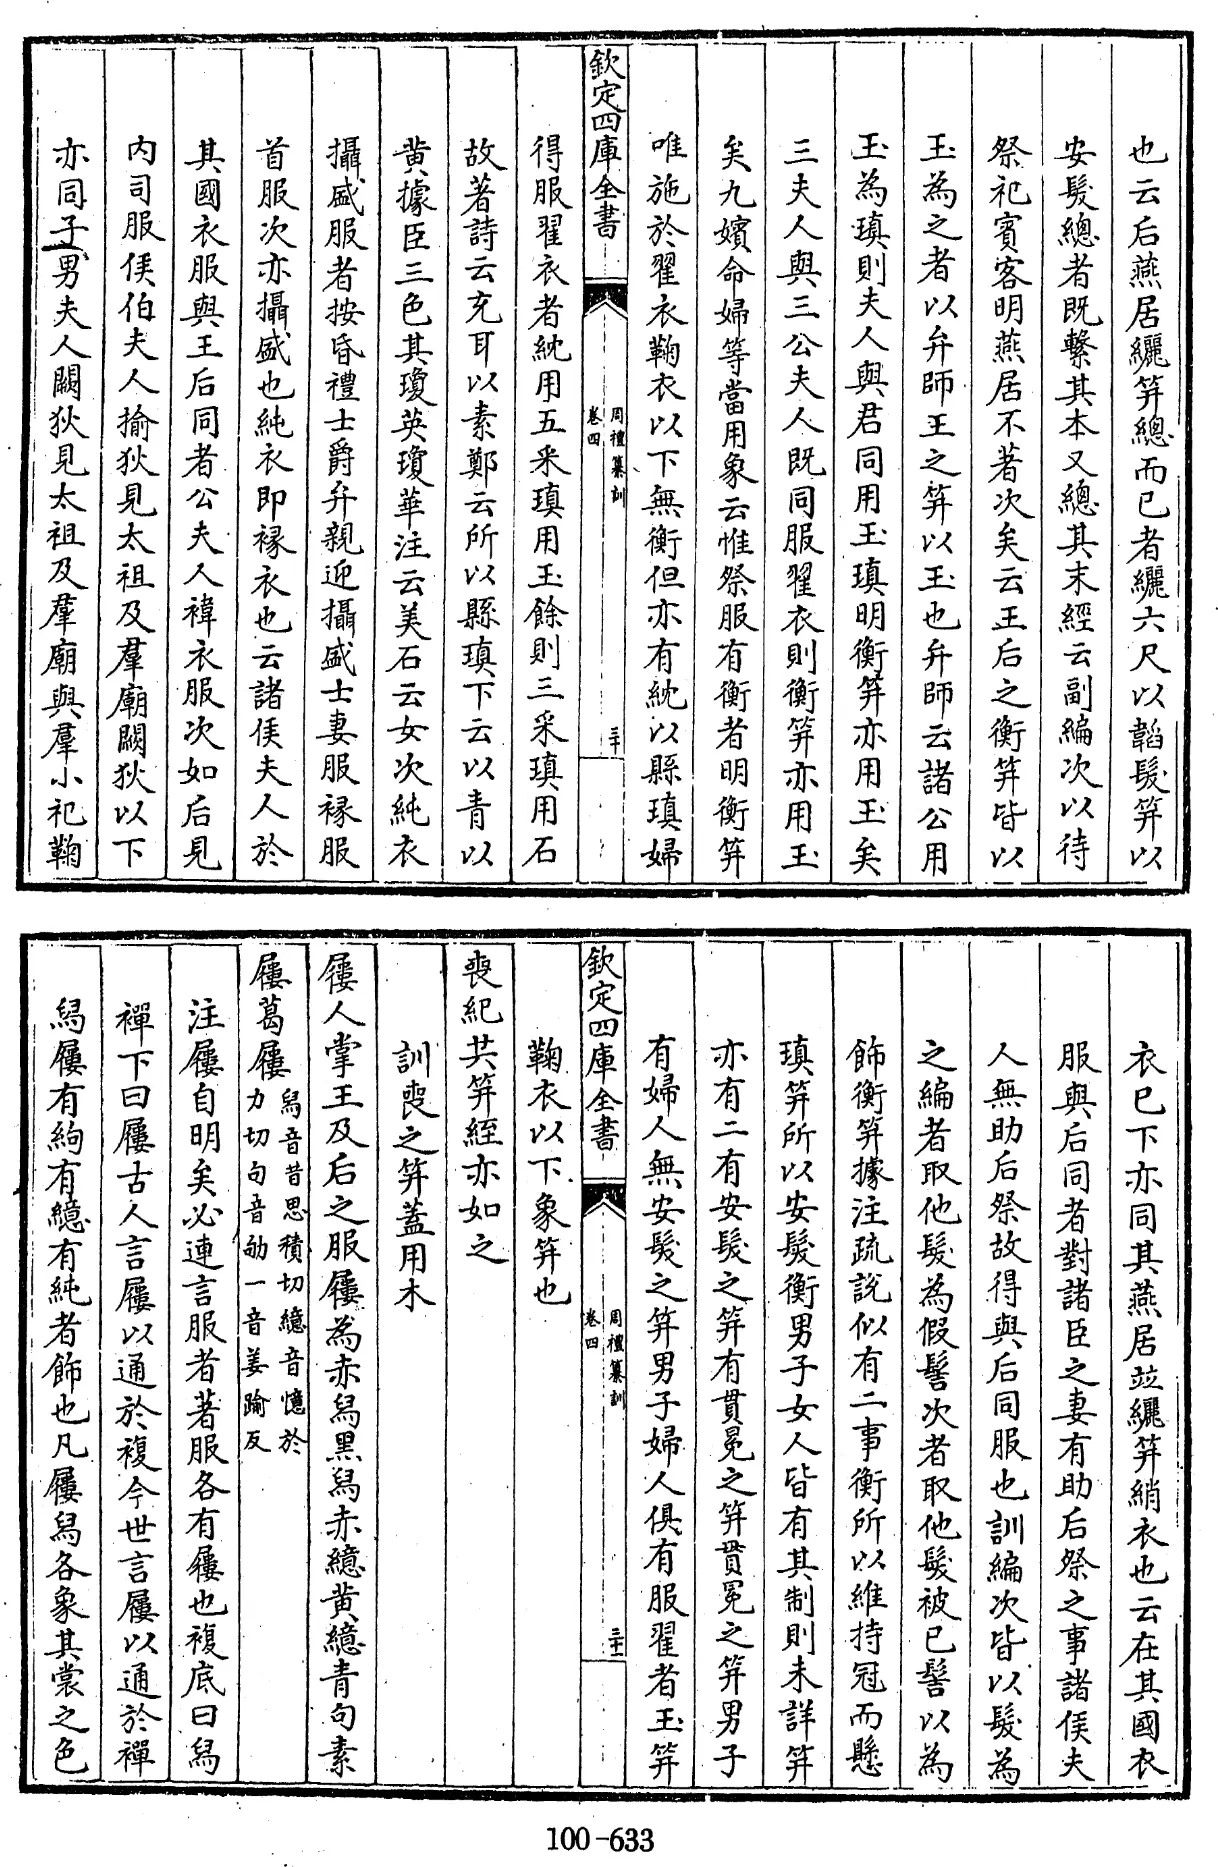 也云后燕居纚笄總而已者纚六尺以韜髮笄以
安髮總者既繫其本又總其末經云副編次以待
祭祀賓客明燕居不著次矣云王后之衡笄皆以
玉為之者以弁師王之笄以玉也弁師云諸公用
玉為瑱則夫人與君同用玉瑱明衡笄亦用玉矣
三夫人與三公夫人既同服翟衣則衡笄亦用玉
矣九嬪命婦等當用象云惟祭服有衡者明衡笄
唯施於翟衣鞠衣以下無衡但亦有紞以縣瑱婦
欽定四庫全書
周禮纂訓
卷四
三十
得服翟衣者紞用五采瑱用玉餘則三采瑱用石
故著詩云充耳以素鄭云所以縣瑱下云以青以
黄據臣三色其瓊英瓊華注云美石云女次純衣
攝盛服者按昏禮士爵弁親迎攝盛士妻服褖服
首服次亦攝盛也純衣即褖衣也云諸侯夫人於
其國衣服與王后同者公夫人褘衣服次如后見
内司服侯伯夫人揄狄見太祖及羣廟闕狄以下
亦同子男夫人闕狄見太祖及羣廟與羣小祀鞠
衣已下亦同其燕居並纚笄綃衣也云在其國衣
服與后同者對諸臣之妻有助后祭之事諸侯夫
人無助后祭故得與后同服也訓編次皆以髮為
之編者取他髮為假髻次者取他髮被已髻以為
飾衡笄據注疏說似有二事衡所以維持冠而懸
瑱笄所以安髮衡男子女人皆有其制則未詳笄
亦有二有安髮之笄有貫冕之笄貫冕之笄男子
有婦人無安髮之笄男子婦人俱有服翟者玉笄
欽定四庫全書
周禮纂訓
卷四
三十一
鞠衣以下象笄也
喪紀共笄絰亦如之
訓喪之笄蓋用木
屨人掌王及后之服屨為赤舄黑舄赤繶黄繶青句素
屨葛屨舄音昔思積切繶音憶於
力切句音劬一音姜踰反
注屨自明矣必連言服者著服各有屨也複底曰舄
襌下曰屨古人言屨以通於複今世言屨以通於襌
舄屨有絇有繶有純者飾也凡屨舄各象其裳之色
100-633